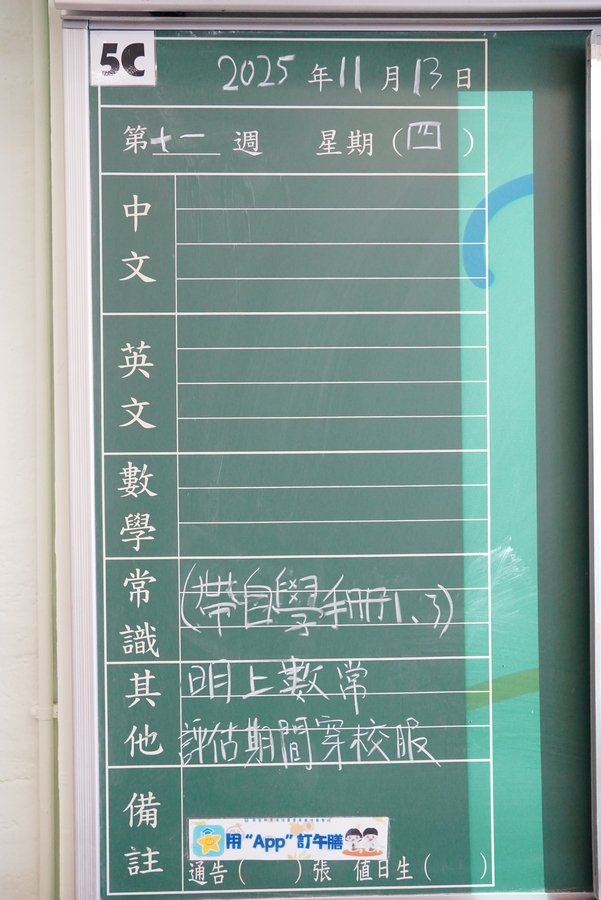 5C
2025 年 11 月 13 日
第 十一 週 星期 ( 四 )
中文
英文
數學
常識
(帶自學手冊1、3)
其他
明上數常
評估期間穿校服
備註
用“App”訂午膳
通告 ( ) 張 值日生 ( )